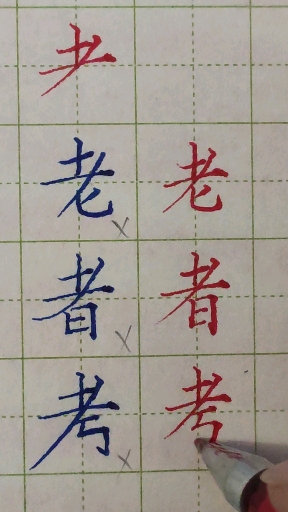 耂
老 老
者 者
考 考